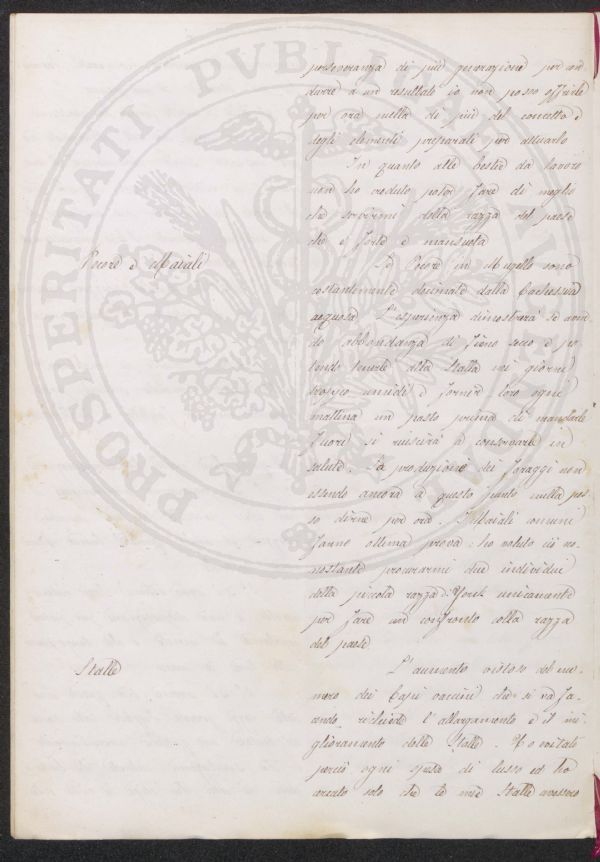 perseveranza di più generazione per con-
durre a un resultato io non posso offrirle
per ora nulla di più del concetto e
degli elementi preparati per attuarlo
In quanto alle bestie da lavoro
non ho veduto poter fare di meglio
che servirmi della razza del paese
che è forte e mansueta
Pecore e Maiali
Le Pecore in Mugello sono
costantemente decimate dalla Cachessia
acquosa. L'esperienza dimostrerà se aven-
do abbondanza di fieno secco e po-
tendo tenerle alla Stalla nei giorni
troppo umidi e fornir loro ogni
mattina un pasto prima di mandarle
fuori si riuscirà a conservarle in
salute. La produzione dei foraggi non
essendo ancora a questo punto nulla pos-
so dirne per ora. I Maiali comuni
fanno ottima prova: ho voluto ciò no-
nostante procurarmi due individui
della piccola razza York unicamente
per fare un confronto colla razza
del paese
Stalle
L'aumento vistoso del nu-
mero dei Capi vaccini che si va fa-
cendo richiede l'allargamento e il mi-
glioramento delle Stalle. Ho evitato
perciò ogni spesa di lusso ed ho
cercato solo che le mie Stalle avessero
PROSPERITATI PVBLICAE